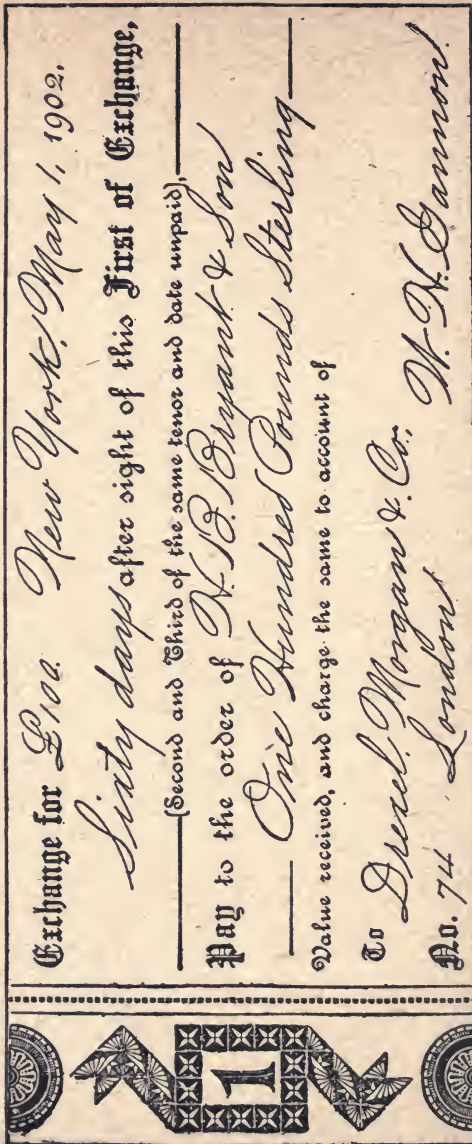 Exchange for £100. New York, May 1, 1902.
Sixty days after sight of this First of Exchange,
(Second and Third of the same tenor and date unpaid),
Pay to the order of H. B. Bryant & Son
One Hundred Pounds Sterling
Value received, and charge the same to account of
To Drexel, Morgan & Co.,
No. 74 London W. H. Gannon.
1